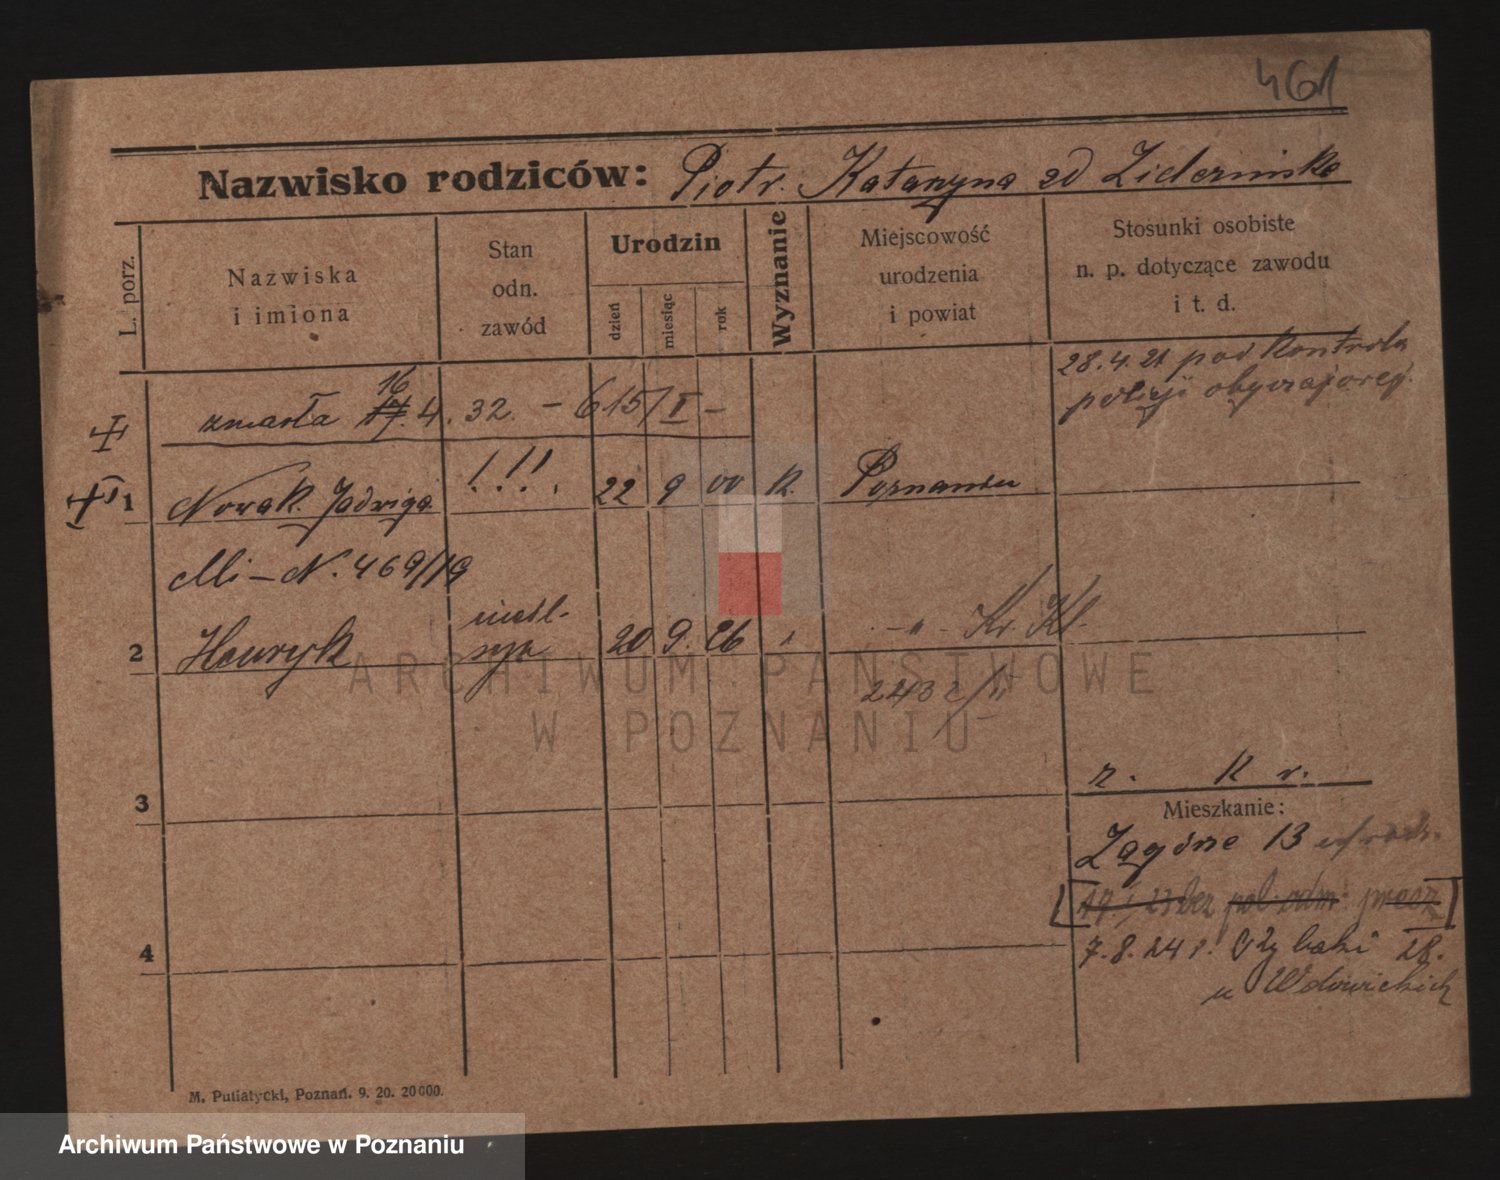 461
Nazwisko rodziców: Piotr. Katarzyna zd
L. porz.
Nazwiska
i imiona
Stan
odn.
zawód
Urodzin
dzień
miesiąc
rok
Wyznanie
Miejscowość
urodzenia
i powiat
Stosunki osobiste
n. p. dotyczące zawodu
i t. d.
28.4.21 pod kontrolą
policji obyczajowej.
16
zmarła 17. 4. 32. – 615/I –
1 Nowak. Jadwiga. !!! 22 9 00 k. Poznaniu
N. 469/19
nieśl.
2 Henryk syn 20 9. 26 -„-
243
z. K r.
3
Mieszkanie:
Zagórze 13
bez pol. odm.
4
7.8.24 r. Rybaki 28.
u Wdowickich
M. Putiatycki, Poznań. 9. 20. 20000.
ARCHIWUM PAŃSTWOWE
W POZNANIU
Archiwum Państwowe w Poznaniu